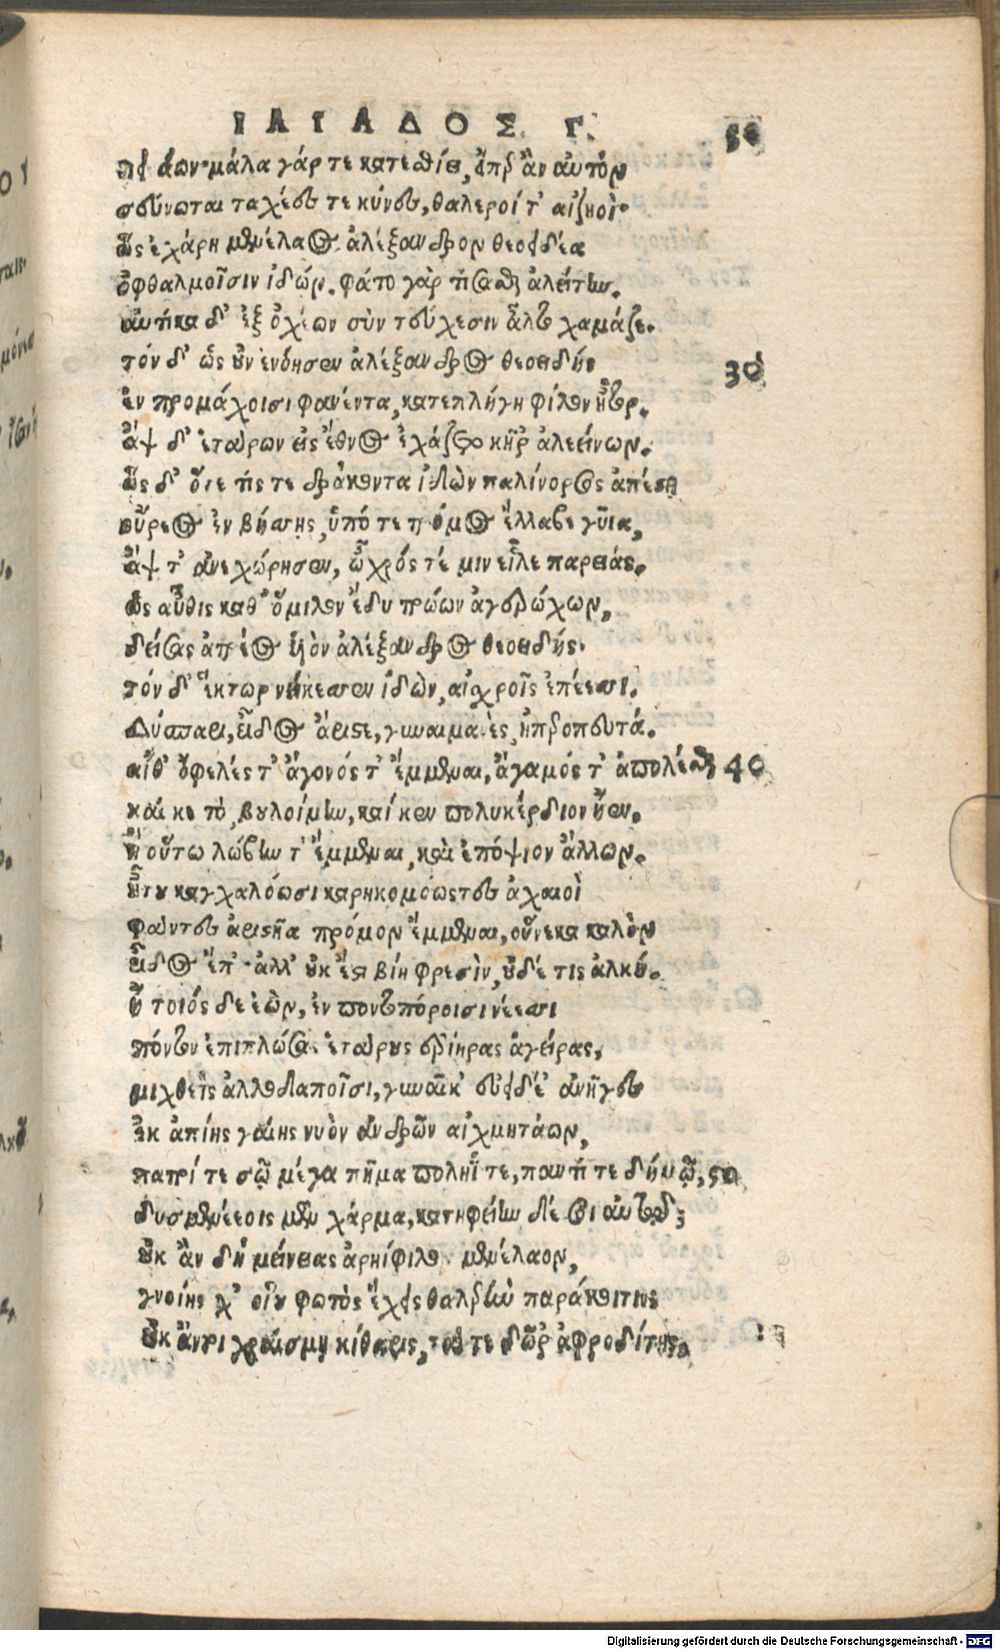 ΙΛΙΑΔΟΣ Γ. 56
πεινάων· μάλα γάρ τε κατεσθίει, εἴπερ ἂν αὐτὸν
σεύωνται ταχέες τε κύνες, θαλεροί τ' αἰζηοί·
ὣς ἐχάρη μενέλαος ἀλέξανδρον θεοειδέα
ὀφθαλμοῖσιν ἰδών. φάτο γὰρ τίσασθαι ἀλείτην.
αὐτίκα δ' ἐξ ὀχέων σὺν τεύχεσιν ἆλτο χαμᾶζε.
τὸν δ' ὡς οὖν ἐνόησεν ἀλέξανδρος θεοειδής 30
ἐν προμάχοισι φανέντα, κατεπλήγη φίλον ἦτορ.
ἂψ δ' ἑτάρων εἰς ἔθνος ἐχάζετο κῆρ' ἀλεείνων.
ὡς δ' ὅτε τίς τε δράκοντα ἰδὼν παλίνορσος ἀπέστη
οὔρεος ἐν βήσσης, ὑπό τε τρόμος ἔλλαβε γυῖα,
ἄψ τ' ἀνεχώρησεν, ὦχρός τέ μιν εἷλε παρειάς.
ὣς αὖθις καθ' ὅμιλον ἔδυ τρώων ἀγερώχων,
δείσας ἀτρέος υἱὸν ἀλέξανδρος θεοειδής.
τὸν δ' ἕκτωρ νείκεσσεν ἰδὼν, αἰσχροῖς ἐπέεσσι.
Δύσπαρι, εἶδος ἄριστε, γυναιμανὲς, ἠπεροπευτά.
αἴθ' ὄφελές τ' ἄγονός τ' ἔμμεναι, ἄγαμός τ' ἀπολέσθαι 40
καί κε τὸ βουλοίμην, καί κεν πολυκέρδιον ἦεν.
ἢ οὕτω λώβην τ' ἔμμεναι, καὶ ἐπόψιον ἄλλων.
ἦ που καγχαλόωσι καρηκομόωντες ἀχαιοὶ
φάντες ἀριστῆα πρόμον ἔμμεναι, οὕνεκα καλὸν
εἶδος ἔπ'· ἀλλ' οὐκ ἔστι βίη φρεσὶν, οὐδέ τις ἀλκή.
ἦ τοιόσδε ἐὼν, ἐν ποντοπόροισι νέεσσι
πόντον ἐπιπλώσας ἑτάρους ἐρίηρας ἀγείρας,
μιχθεὶς ἀλλοδαποῖσι, γυναῖκ' εὐειδέ' ἀνῆγες
ἐκ ἀπίης γαίης νυὸν ἀνδρῶν αἰχμητάων,
πατρί τε σῷ μέγα πῆμα πόληΐ τε, παντί τε δήμῳ, 50
δυσμενέεσσι μὲν χάρμα, κατηφείην δέ σοι αὐτῷ;
οὐκ ἂν δὴ μείνειας ἀρηίφιλον μενέλαον,
γνοίης χ' οἵου φωτὸς ἔχεις θαλερὴν παράκοιτιν
οὐκ ἄν τοι χραίσμῃ κίθαρις, τά τε δῶρ' ἀφροδίτης.
Digitalisierung gefördert durch die Deutsche Forschungsgemeinschaft - DFG